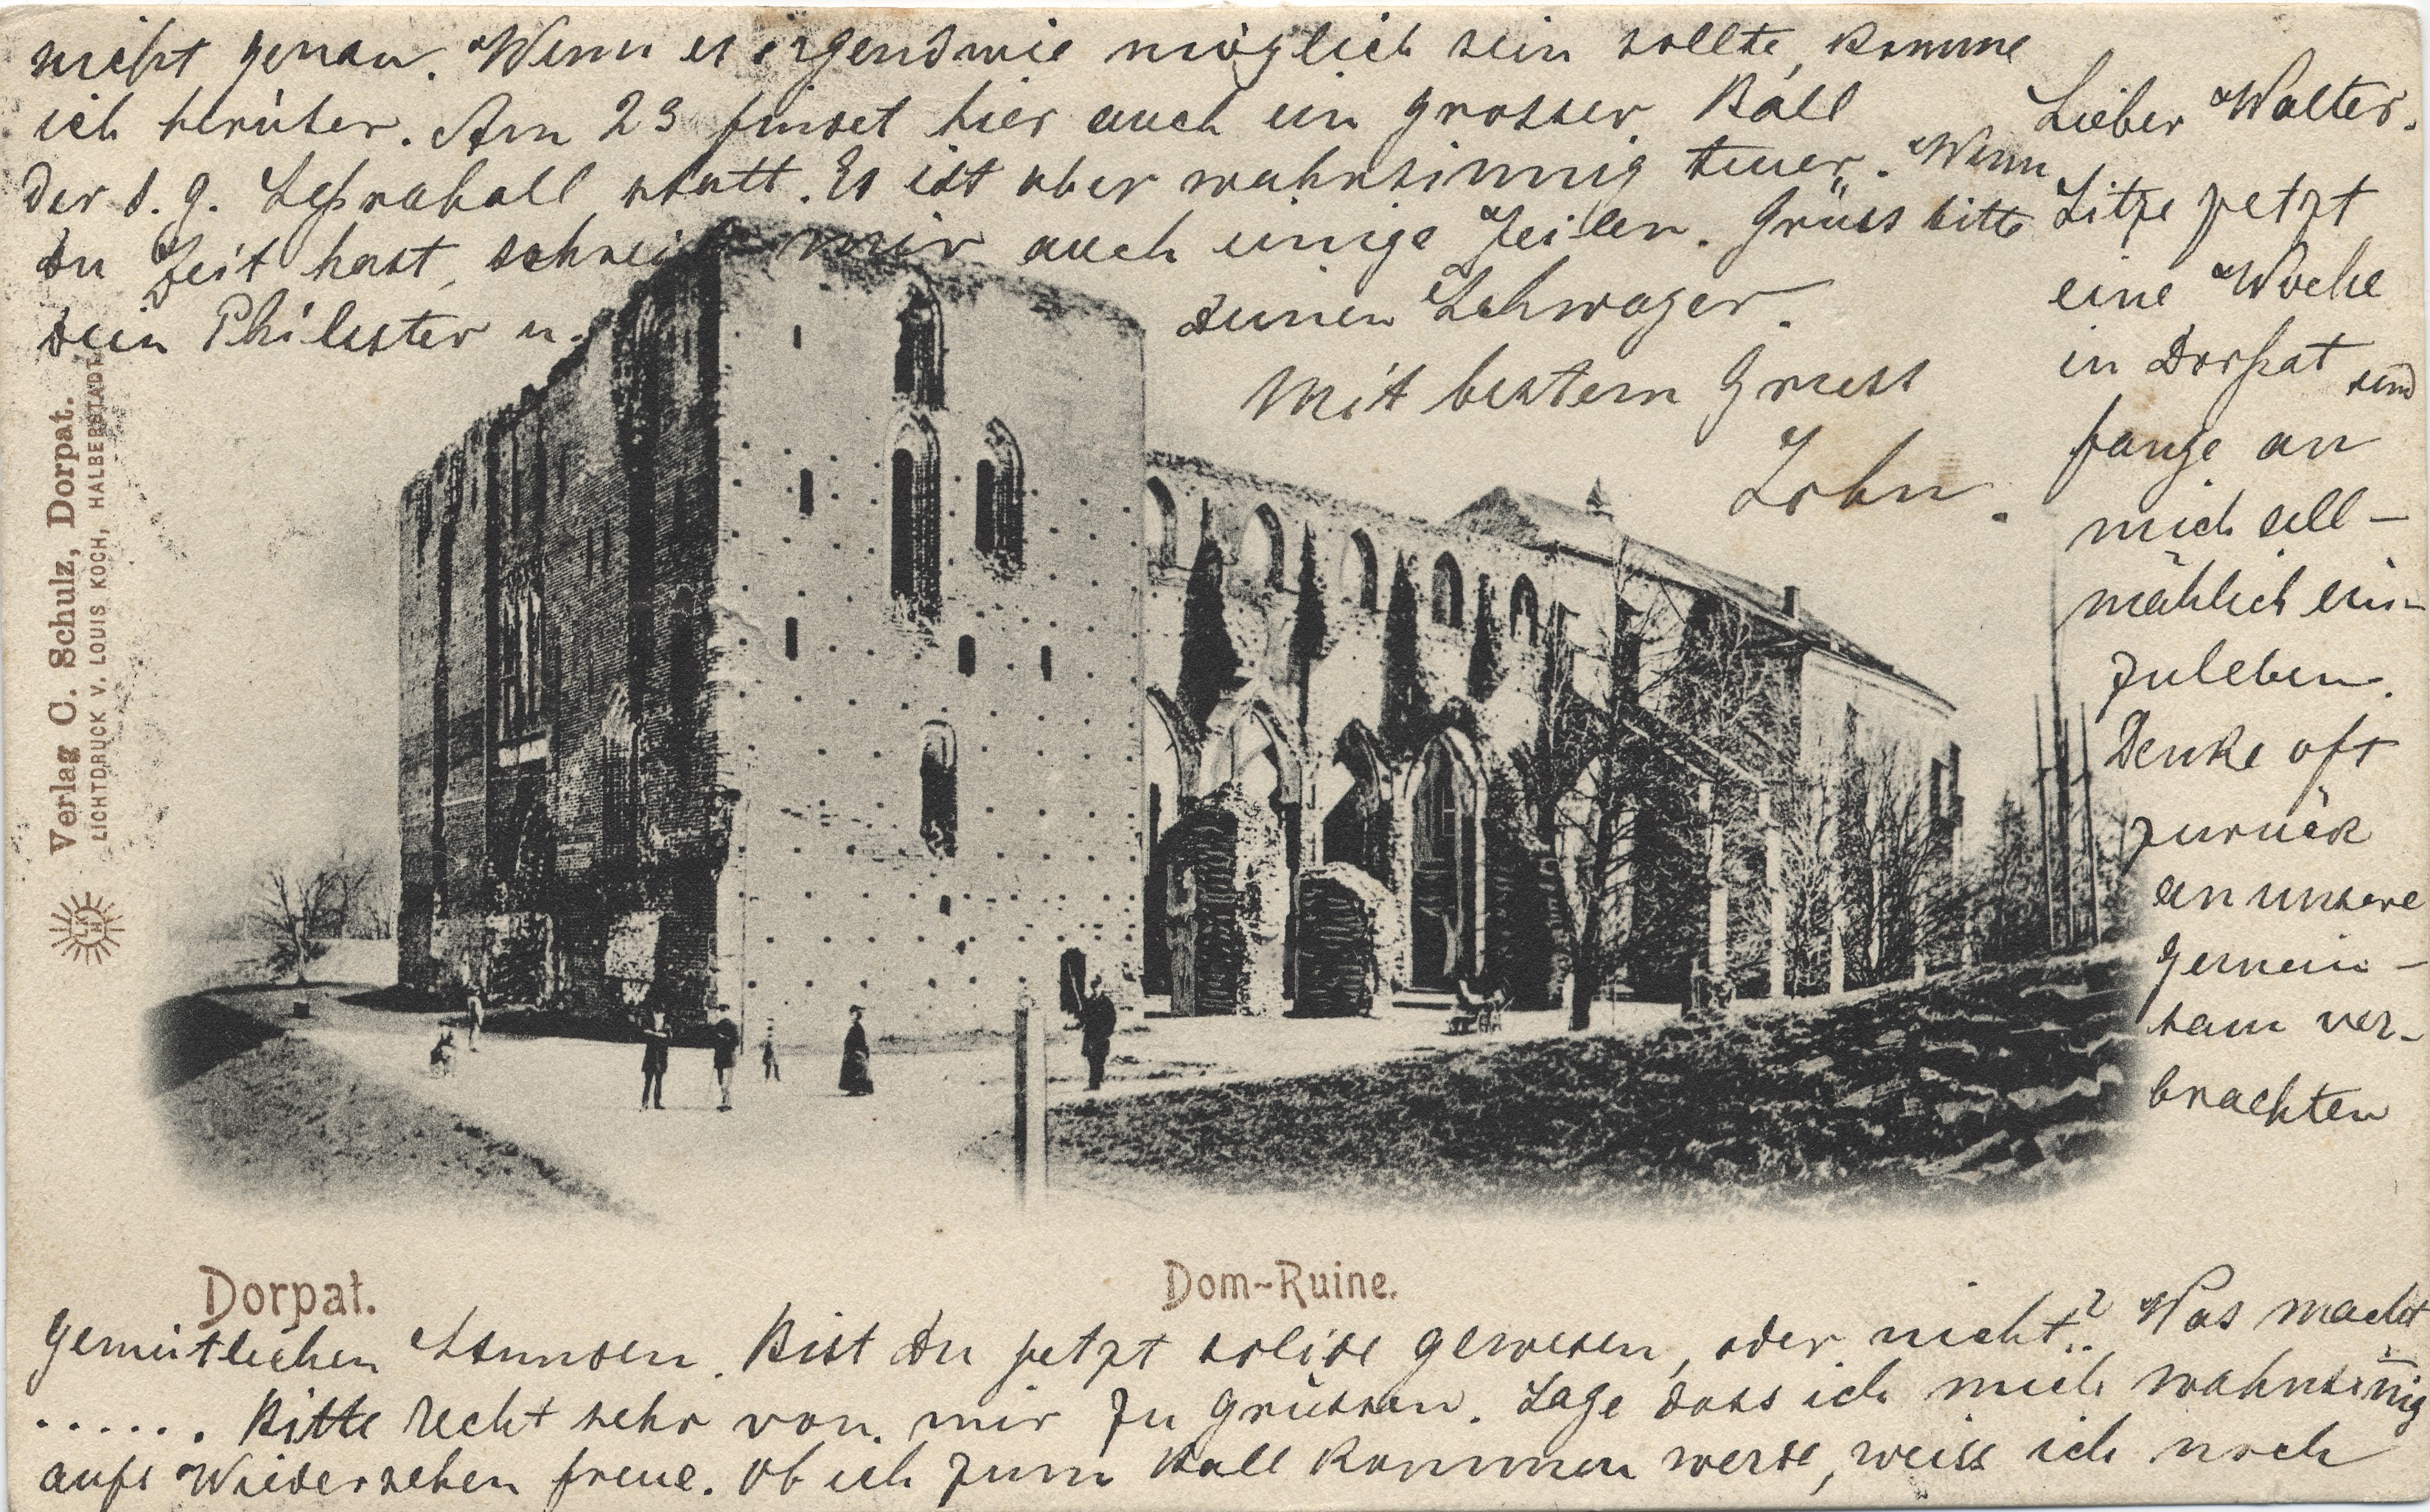 Lieber Walter.
Sitze jetzt
eine Woche
in Dorpat und
fange an
mich all-
mählich ein-
zuleben.
Denke oft
zurück
an unsere
gemein-
sam ver-
brachten
gemütlichen Stunden. Bist du jetzt solide gewesen, oder nicht? Was macht
...... Bitte recht sehr von mir zu grüssen. Sage dass ich mich wahnsinnig
aufs Wiedersehen freue. Ob ich zum Ball kommen werde, weiss ich noch
nicht genau. Wenn es irgendwie möglich sein sollte, komme
ich herüber. Am 23 findet hier auch ein grosser Ball
der s. g. statt. Es ist aber wahnsinnig teuer. Wenn
du Zeit hast, schreib mir auch einige Zeilen. Grüss bitte
dein Philister u. deinen Schwager.
Mit bestem Gruss
John.
Verlag C. Schulz, Dorpat.
LICHTDRUCK V. LOUIS KOCH, HALBERSTADT.
LKH
Dorpat.
Dom-Ruine.